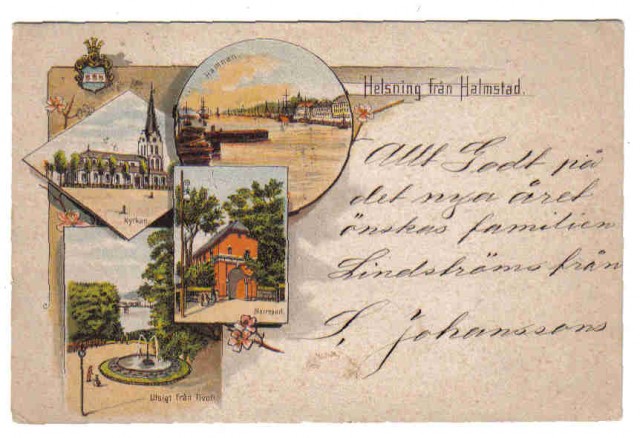 Hamnen.
Helsning från Halmstad.
Kyrkan.
Norreport.
Utsigt från Tivoli.
Allt Godt på
det nya året
önskas familien
Lindströms från
S. Johanssons